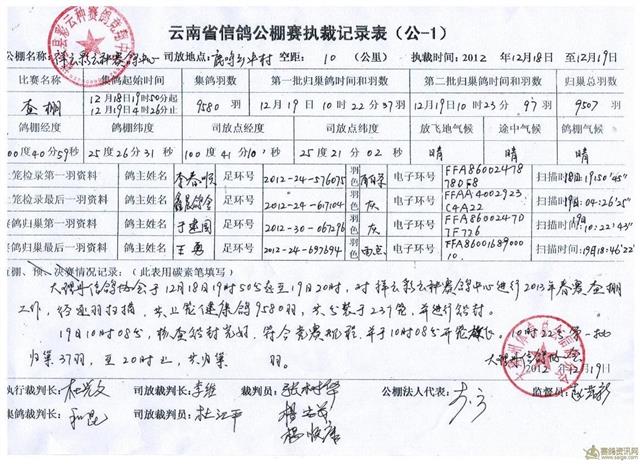 云南省信鸽公棚赛执裁记录表（公-1）
公棚名称: 祥云彩云种赛鸽中心 司放地点: 空距: 10 （公里） 执裁时间: 2012 年12月18日 至12月19日
比赛名称 集鸽起始时间 集鸽羽数 第一批归巢鸽时间和羽数 第二批归巢鸽时间和羽数 归巢总羽数
查棚 12月18日19时50分起 9580 羽 12月19日10时22分37羽 12月19日10时23分 97羽 9507 羽
12月19日4时26分止
鸽棚经度 鸽棚纬度 司放点经度 司放点纬度 放飞地气候 途中气候 鸽棚气候
100度40分59秒 25度26分31秒 100度41分10秒 25度21分02秒 晴 晴 晴
笼检录第一羽资料 鸽主姓名 李春顺 足环号 2012-24-576075 羽色 电子环号 FFA86002478780F8 扫描时间 18日19:50'45"
笼检录最后一羽资料 鸽主姓名 足环号 2012-24-617104 羽色 灰 电子环号 FFAA4002923C4A22 扫描时间 19日:04:26'25"
鸽归巢第一羽资料 鸽主姓名 于建国 足环号 2012-30-067296 羽色 灰 电子环号 FFA860024707F726 扫描时间 19日:10:22'43"
鸽归巢最后一羽资料 鸽主姓名 王勇 足环号 2012-24-697694 羽色 雨点 电子环号 FFA86001689000010 扫描时间: 19日18:46'22"
查棚、预、决赛情况记录：（此表用碳素笔填写）
大理州信鸽协会于12月18日19时50分至19日20时，对祥云彩云种赛鸽中心进行2013年春赛查棚
工作，经逐羽扫描，共上笼健康鸽9580羽，共分装于237笼，并进行铅封。
19日10时08分，检查铅封完好，符合竞赛规程，并于10时08分开笼放飞。10时22分第一批
归巢37羽，至20时止，共归巢 羽。
大理州信鸽协会
2012年12月19日
执行裁判长: 司放裁判长: 李维 裁判员: 公棚法人代表: 监督员:
集鸽裁判长: 司放裁判员: 杜江平
赛鸽资讯网
www.saige.com